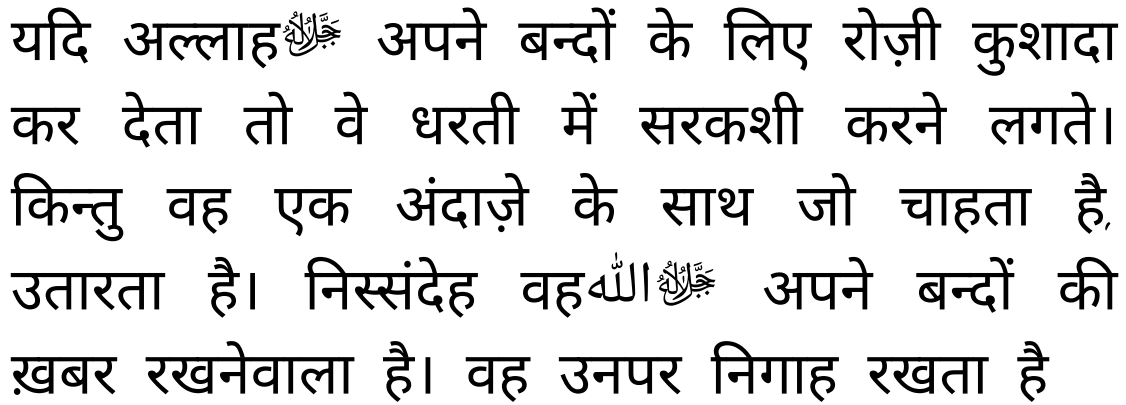 यदि अल्लाहﷻ अपने बन्दों के लिए रोज़ी कुशादा
कर देता तो वे धरती में सरकशी करने लगते।
किन्तु वह एक अंदाज़े के साथ जो चाहता है,
उतारता है। निस्संदेह वहاللهﷻ अपने बन्दों की
ख़बर रखनेवाला है। वह उनपर निगाह रखता है